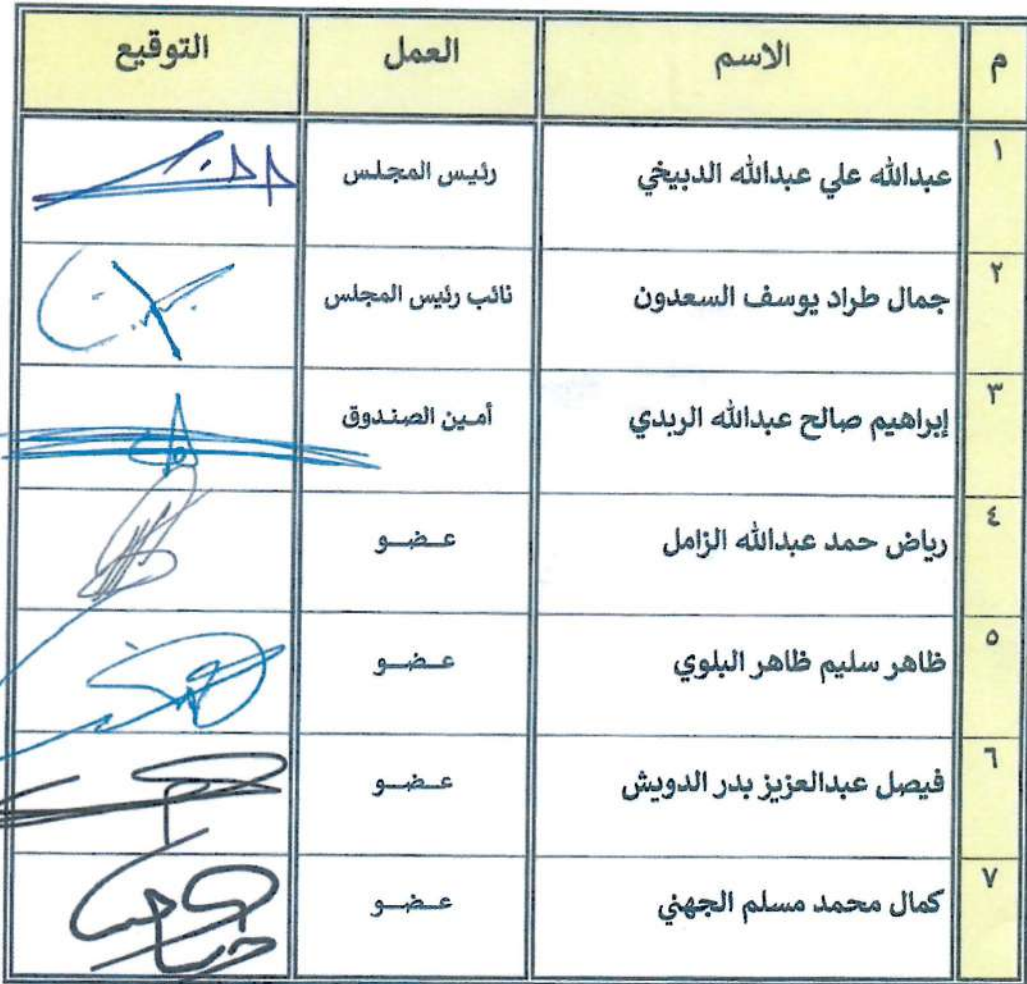 م الاسم العمل التوقيع
١ عبدالله علي عبدالله الدبيخي رئيس المجلس
٢ جمال طراد يوسف السعدون نائب رئيس المجلس
٣ إبراهيم صالح عبدالله الربدي أمين الصندوق
٤ رياض حمد عبدالله الزامل عضو
٥ ظاهر سليم ظاهر البلوي عضو
٦ فيصل عبدالعزيز بدر الدويش عضو
٧ كمال محمد مسلم الجهني عضو